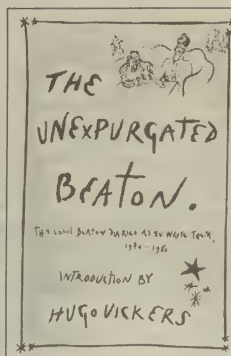 THE
UNEXPURGATED
BEATON.
THE CECIL BEATON DIARIES AS HE WROTE THEM,
1970–1980
INTRODUCTION BY
HUGO VICKERS